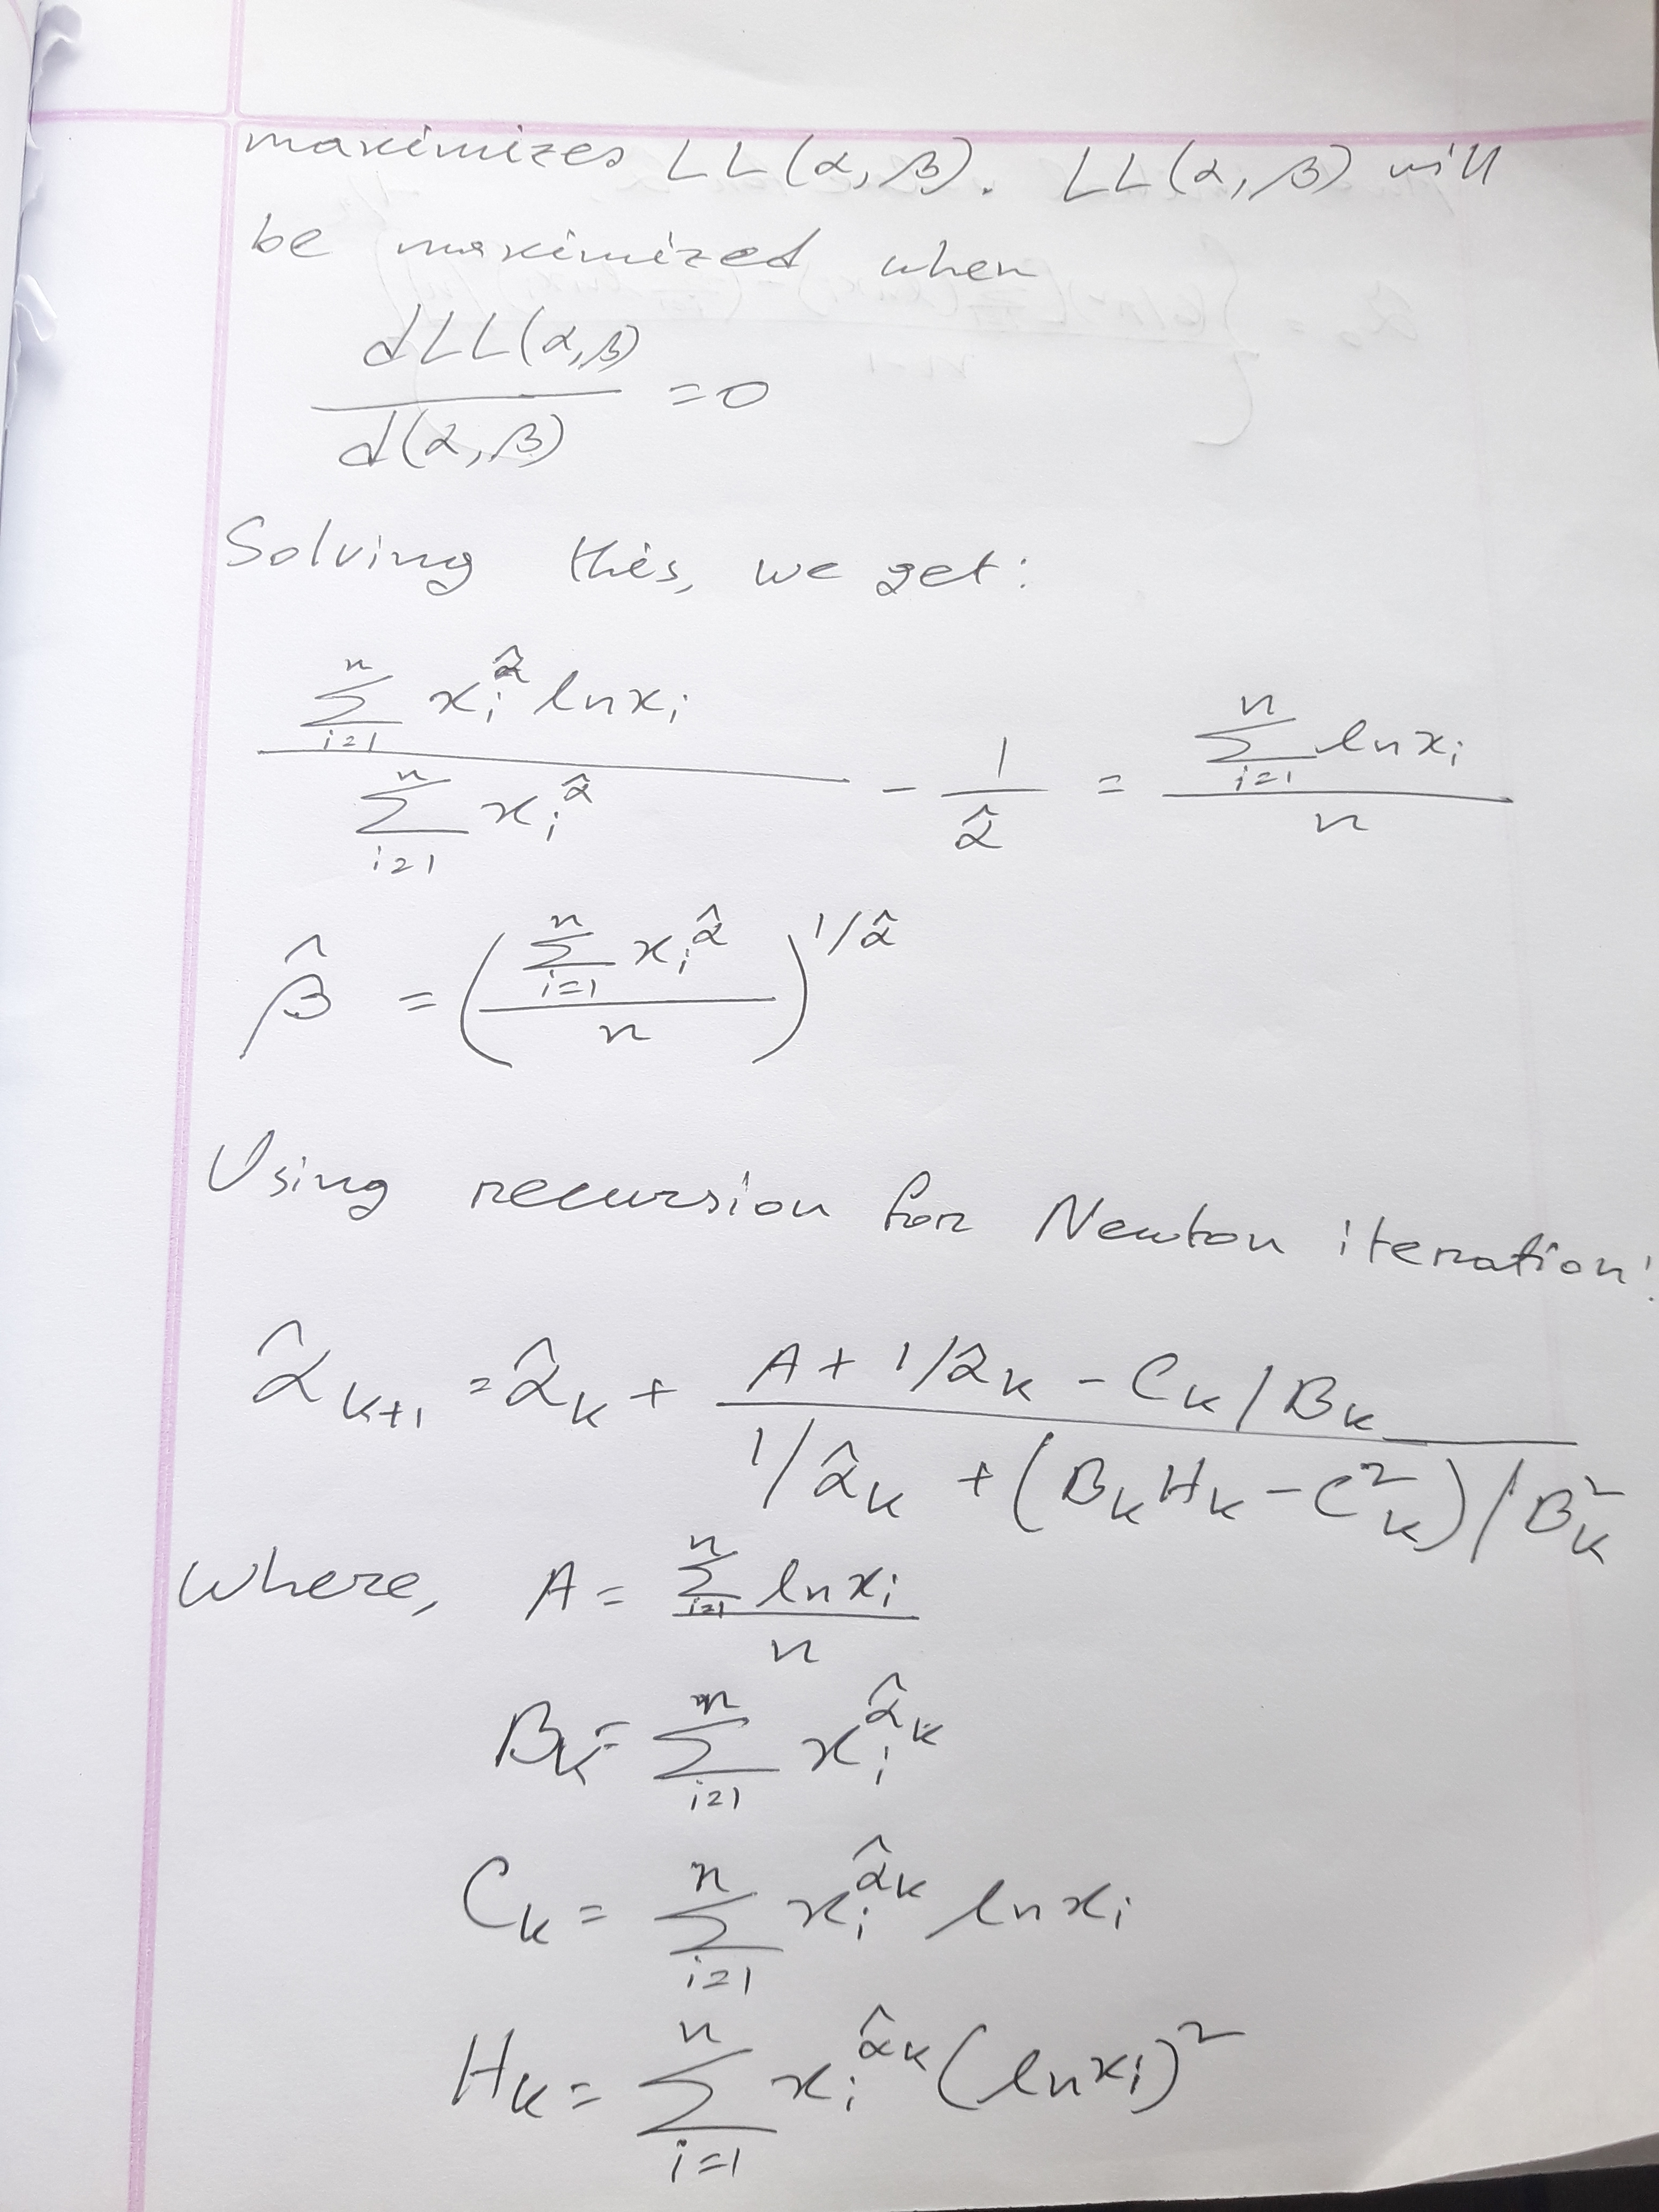 maximizes LL(α, β). LL(α, β) will
be maximized when
dLL(α,β) / d(α,β) = 0
Solving this, we get:
(∑_{i=1}^{n} x_i^{α̂} ln x_i) / (∑_{i=1}^{n} x_i^{α̂}) - 1/α̂ = (∑_{i=1}^{n} ln x_i) / n
β̂ = ((∑_{i=1}^{n} x_i^{α̂}) / n)^{1/α̂}
Using recursion for Newton iteration:
α̂_{k+1} = α̂_k + (A + 1/α̂_k - C_k/B_k) / (1/α̂_k + (B_k H_k - C_k^2)/B_k^2)
where, A = (∑_{i=1}^{n} ln x_i) / n
B_k = ∑_{i=1}^{n} x_i^{α̂_k}
C_k = ∑_{i=1}^{n} x_i^{α̂_k} ln x_i
H_k = ∑_{i=1}^{n} x_i^{α̂_k} (ln x_i)^2